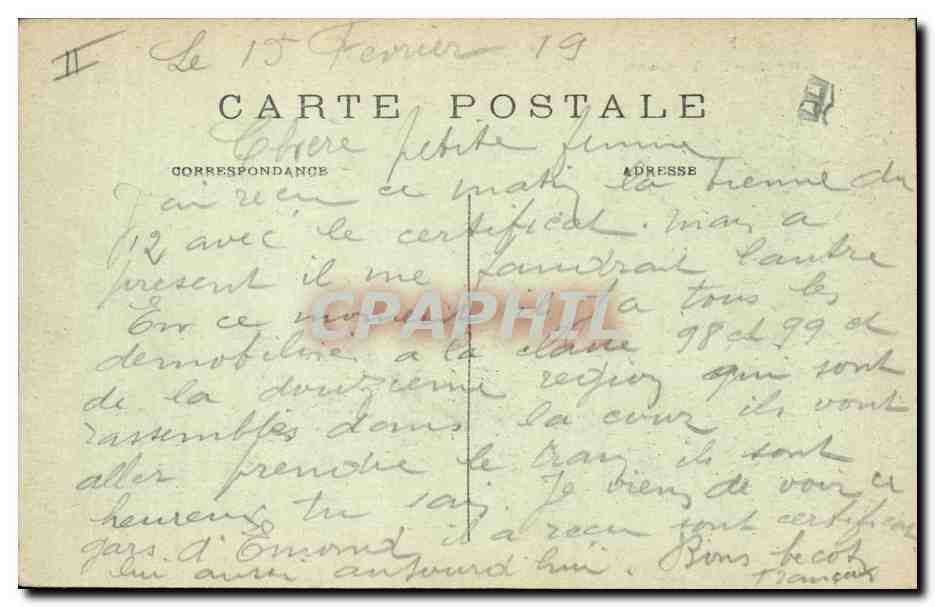 II
Le 15 Fevrier 19
CARTE POSTALE
Chère petite femme
CORRESPONDANCE
ADRESSE
J'ai recu ce matin la tienne du
12 avec le certificat. mais a
present il me faudrait l'autre
En ce moment il y a tous les
CPAPHIL
demobilisés a la classe 98 et 99 et
de la douzieme region qui sont
rassemblés dans la cour ils vont
aller prendre le train ils sont
heureux tu sais Je viens de voir ce
gars d'Emond il a recu sont certificat
lui aussi aujourd'hui. Bons becots
François